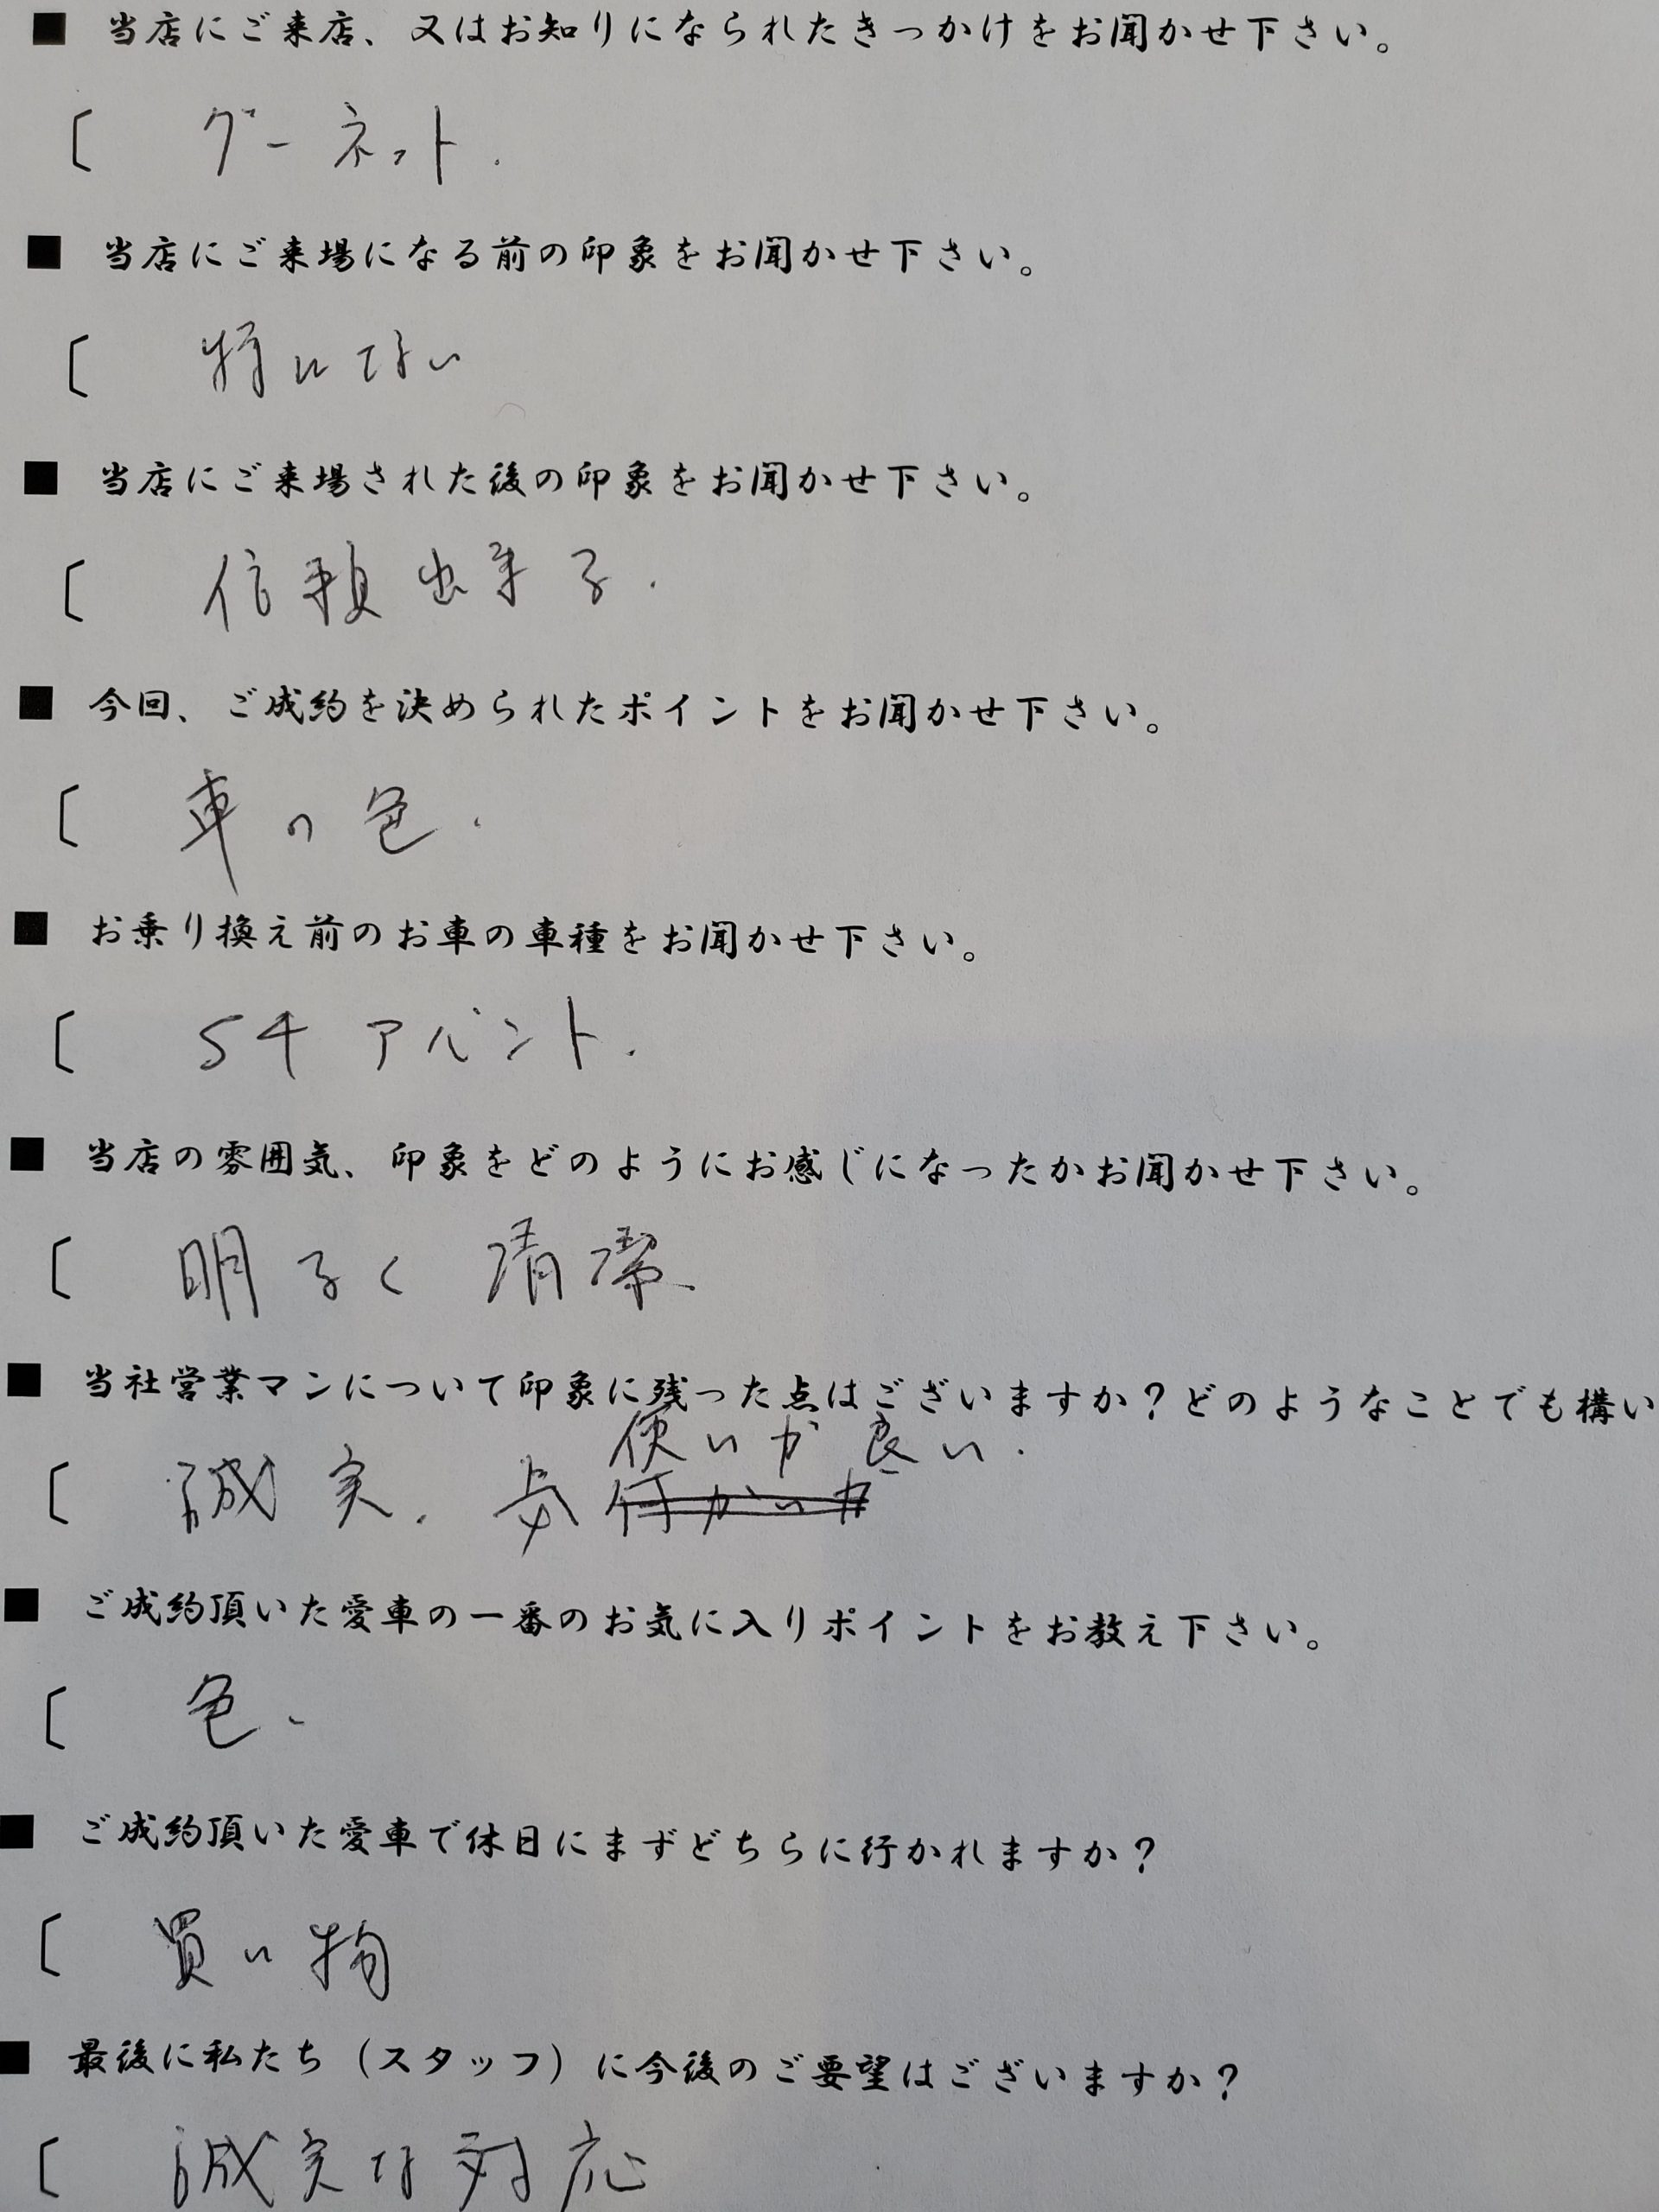 ■ 当店にご来店、又はお知りになられたきっかけをお聞かせ下さい。
〔 グーネット.
■ 当店にご来場になる前の印象をお聞かせ下さい。
〔 特にない
■ 当店にご来場された後の印象をお聞かせ下さい。
〔 信頼出来る.
■ 今回、ご成約を決められたポイントをお聞かせ下さい。
〔 車の色.
■ お乗り換え前のお車の車種をお聞かせ下さい。
〔 S4 アバント.
■ 当店の雰囲気、印象をどのようにお感じになったかお聞かせ下さい。
〔 明るく 清潔
■ 当社営業マンについて印象に残った点はございますか?どのようなことでも構い
使いが良い.
〔 誠実. 気
■ ご成約頂いた愛車の一番のお気に入りポイントをお教え下さい。
〔 色.
■ ご成約頂いた愛車で休日にまずどちらに行かれますか?
〔 買い物
■ 最後に私たち(スタッフ)に今後のご要望はございますか?
〔 誠実な対応